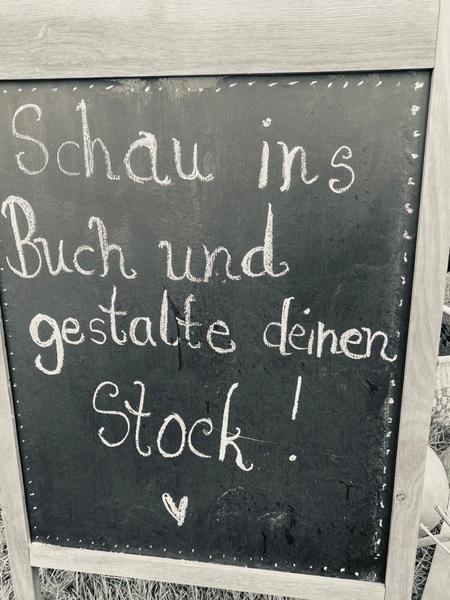 Schau ins
Buch und
gestalte deinen
Stock!